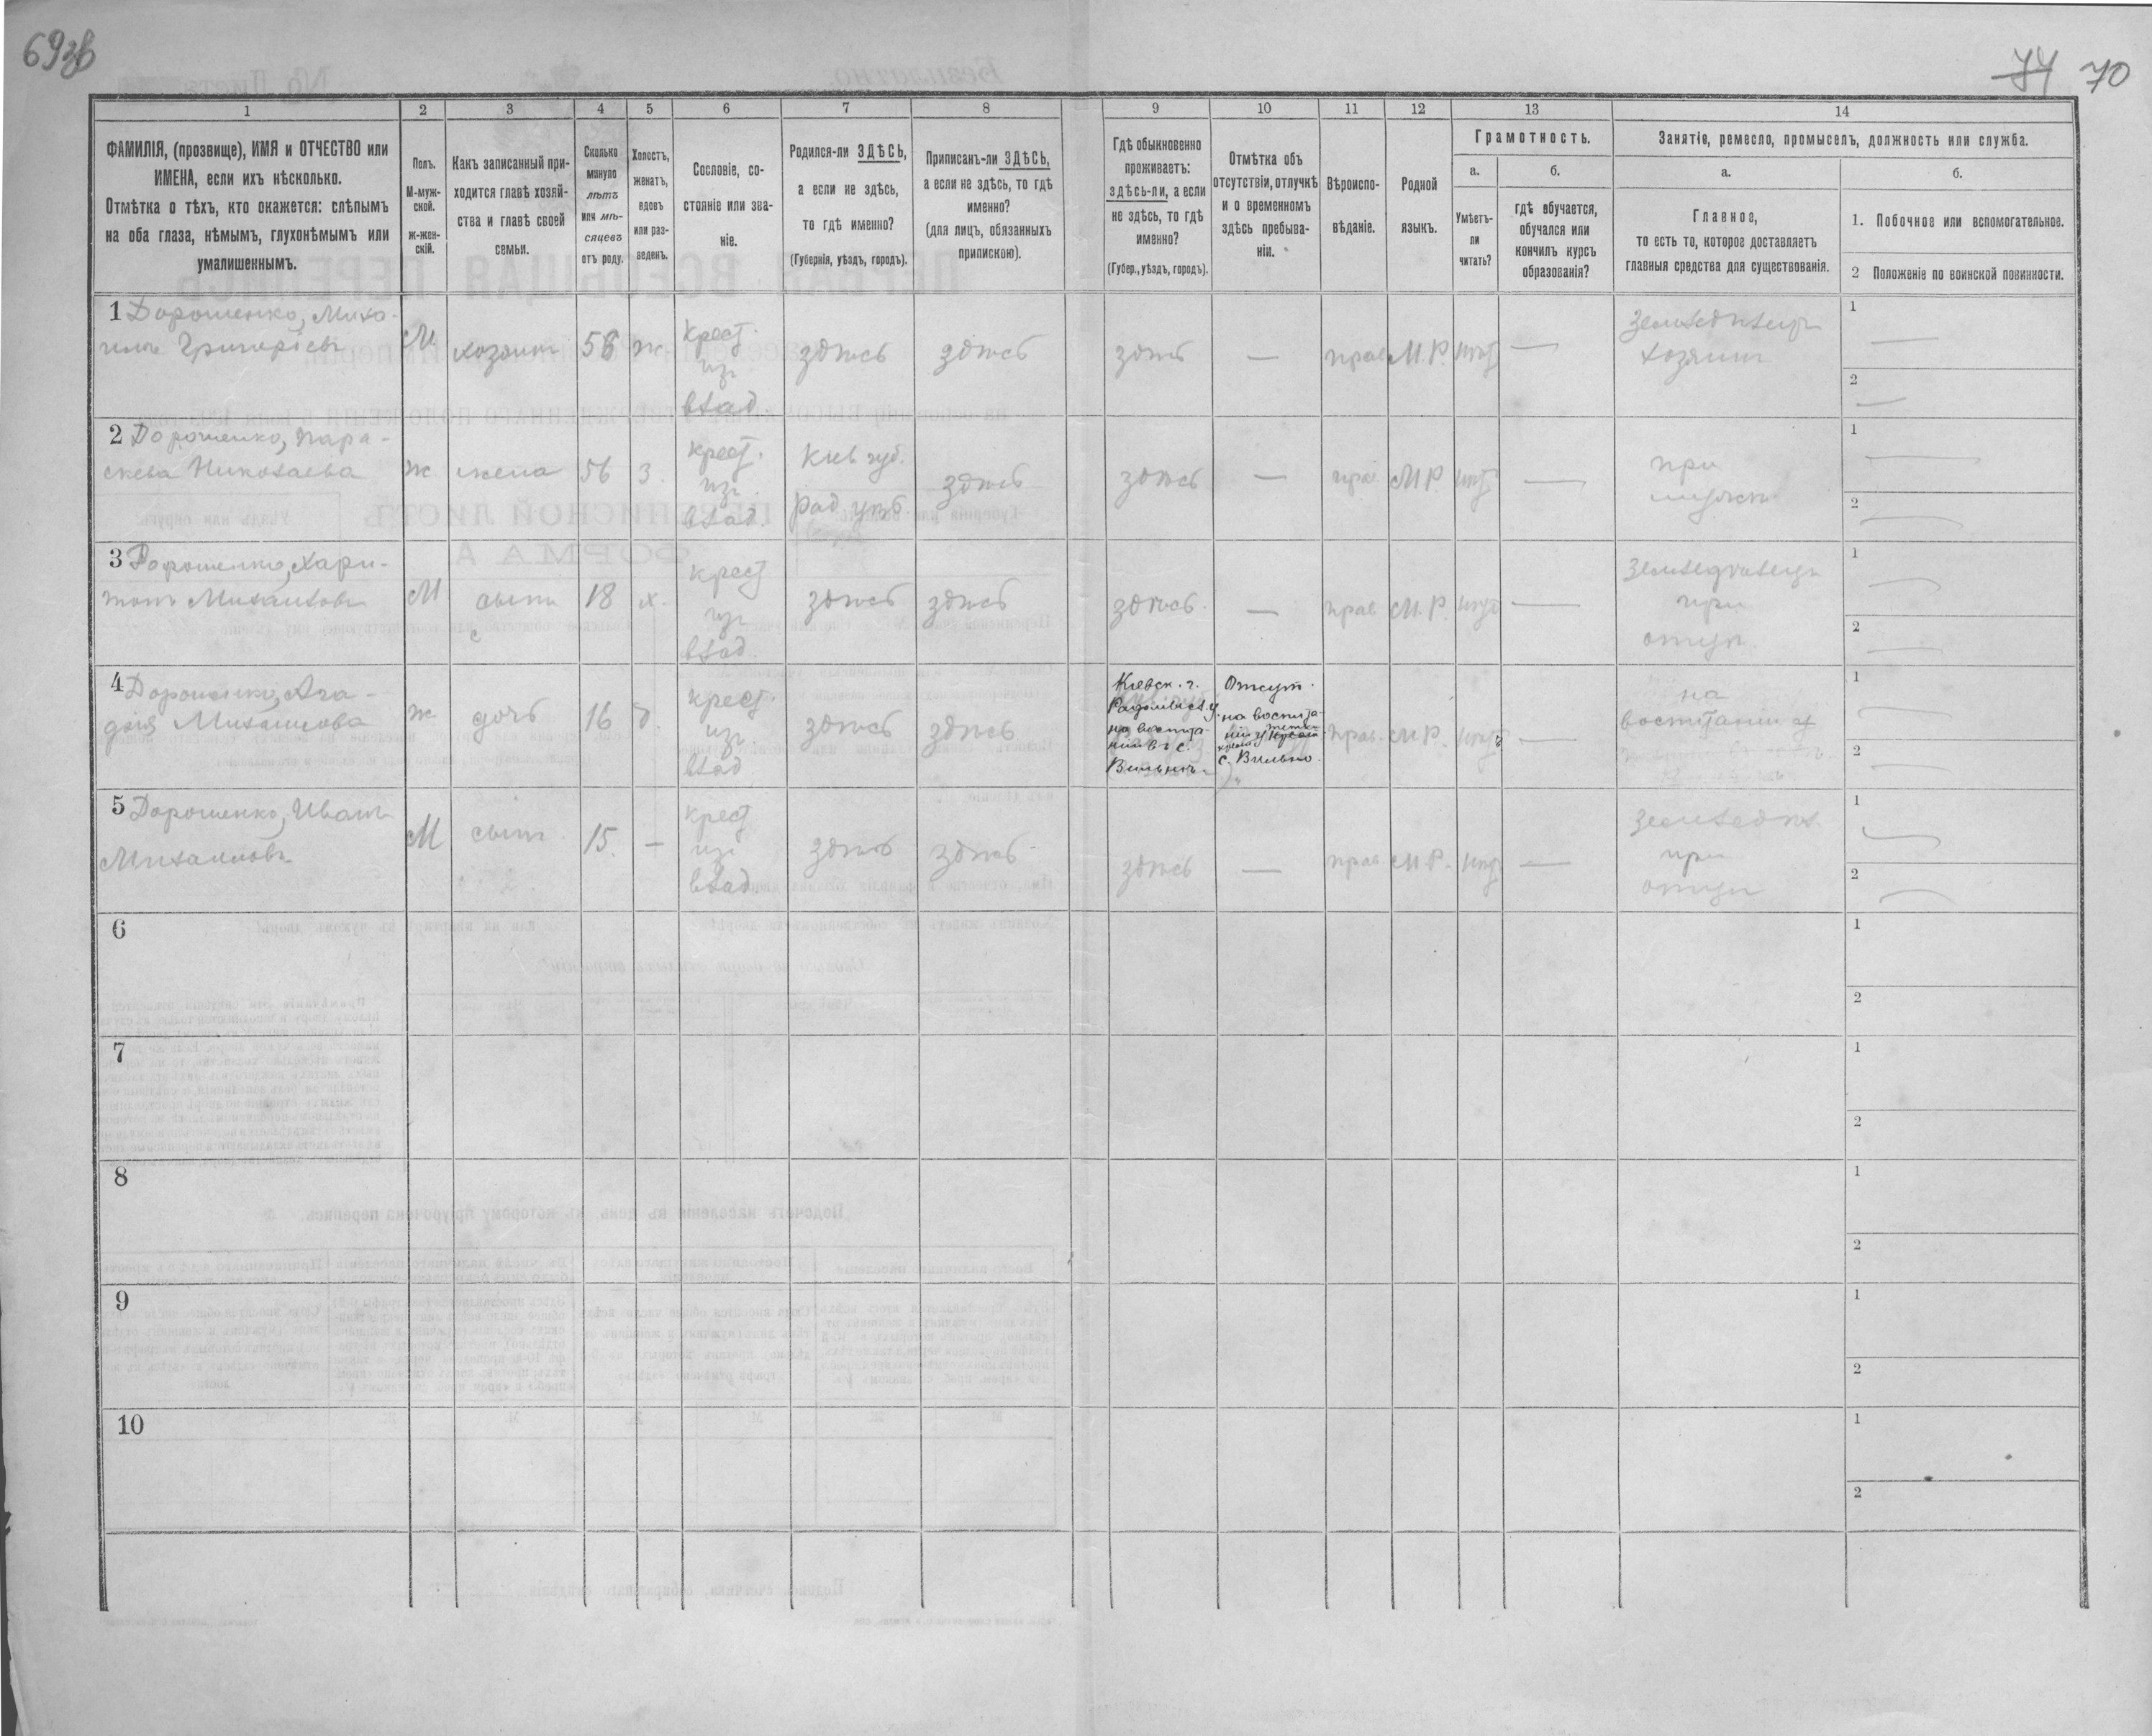 69зв
74 70
1 2 3 4 5 6 7 8 9 10 11 12 13 14
ФАМИЛІЯ, (прозвище), ИМЯ и ОТЧЕСТВО или
ИМЕНА, если ихъ нѣсколько.
Отмѣтка о тѣхъ, кто окажется: слѣпымъ
на оба глаза, нѣмымъ, глухонѣмымъ или
умалишеннымъ.
Полъ.
М-муж-
ской.
ж-жен-
скій.
Какъ записанный при-
ходится главѣ хозяй-
ства и главѣ своей
семьи.
Сколько
минуло
лѣтъ
или мѣ-
сяцевъ
отъ роду.
Холостъ,
женатъ,
вдовъ
или раз-
веденъ.
Сословіе, со-
стояніе или зва-
ніе.
Родился-ли ЗДѢСЬ,
а если не здѣсь,
то гдѣ именно?
(Губернія, уѣздъ, городъ).
Приписанъ-ли ЗДѢСЬ,
а если не здѣсь, то гдѣ
именно?
(для лицъ, обязанныхъ
припискою).
Гдѣ обыкновенно
проживаетъ:
здѣсь-ли, а если
не здѣсь, то гдѣ
именно?
(Губер., уѣздъ, городъ).
Отмѣтка объ
отсутствіи, отлучкѣ
и о временномъ
здѣсь пребыва-
ніи.
Вѣроиспо-
вѣданіе.
Родной
языкъ.
Грамотность.
а.
Умѣетъ-
ли
читать?
б.
гдѣ обучается,
обучался или
кончилъ курсъ
образованія?
Занятіе, ремесло, промыселъ, должность или служба.
а.
Главное,
то есть то, которое доставляетъ
главныя средства для существованія.
б.
1. Побочное или вспомогательное.
2 Положеніе по воинской повинности.
1 Дорошенко, Миха-
илъ Григорієвъ
М
хозяинъ
58
ж
крест.
изъ
влад.
здѣсь
здѣсь
здѣсь
—
прав.
М.Р.
нѣтъ
—
земледѣлецъ
хозяинъ
1 —
2 —
2 Дорошенко, Пара-
скева Николаева
ж
жена
56
з.
крест.
изъ
влад.
Кіев. губ.
Рад. уѣз.
здѣсь
здѣсь
—
прав.
М.Р.
нѣтъ
—
при
мужѣ
1 —
2 —
3 Дорошенко, Хари-
тонъ Михаиловъ
М
сынъ
18
х.
крест.
изъ
влад.
здѣсь
здѣсь
здѣсь.
—
прав.
М.Р.
нѣтъ
—
земледѣлецъ
при
отцѣ
1 —
2 —
4 Дорошенко, Ага-
фія Михаилова
ж
дочь
16
д.
крест.
изъ
влад.
здѣсь
здѣсь
Кіевск. г.
Радомысл. у.
на воспита-
ніи въ с.
Вильнѣ.
Отсут.
на воспита-
ніи у
с. Вильно.
прав.
М.Р.
нѣтъ
—
на
воспитаніи
1 —
2 —
5 Дорошенко, Иванъ
Михаиловъ
М
сынъ
15.
—
крест.
изъ
влад.
здѣсь
здѣсь
здѣсь
—
прав.
М.Р.
нѣтъ
—
земледѣл.
при
отцѣ
1 —
2 —
6
1
2
7
1
2
8
1
2
9
1
2
10
1
2